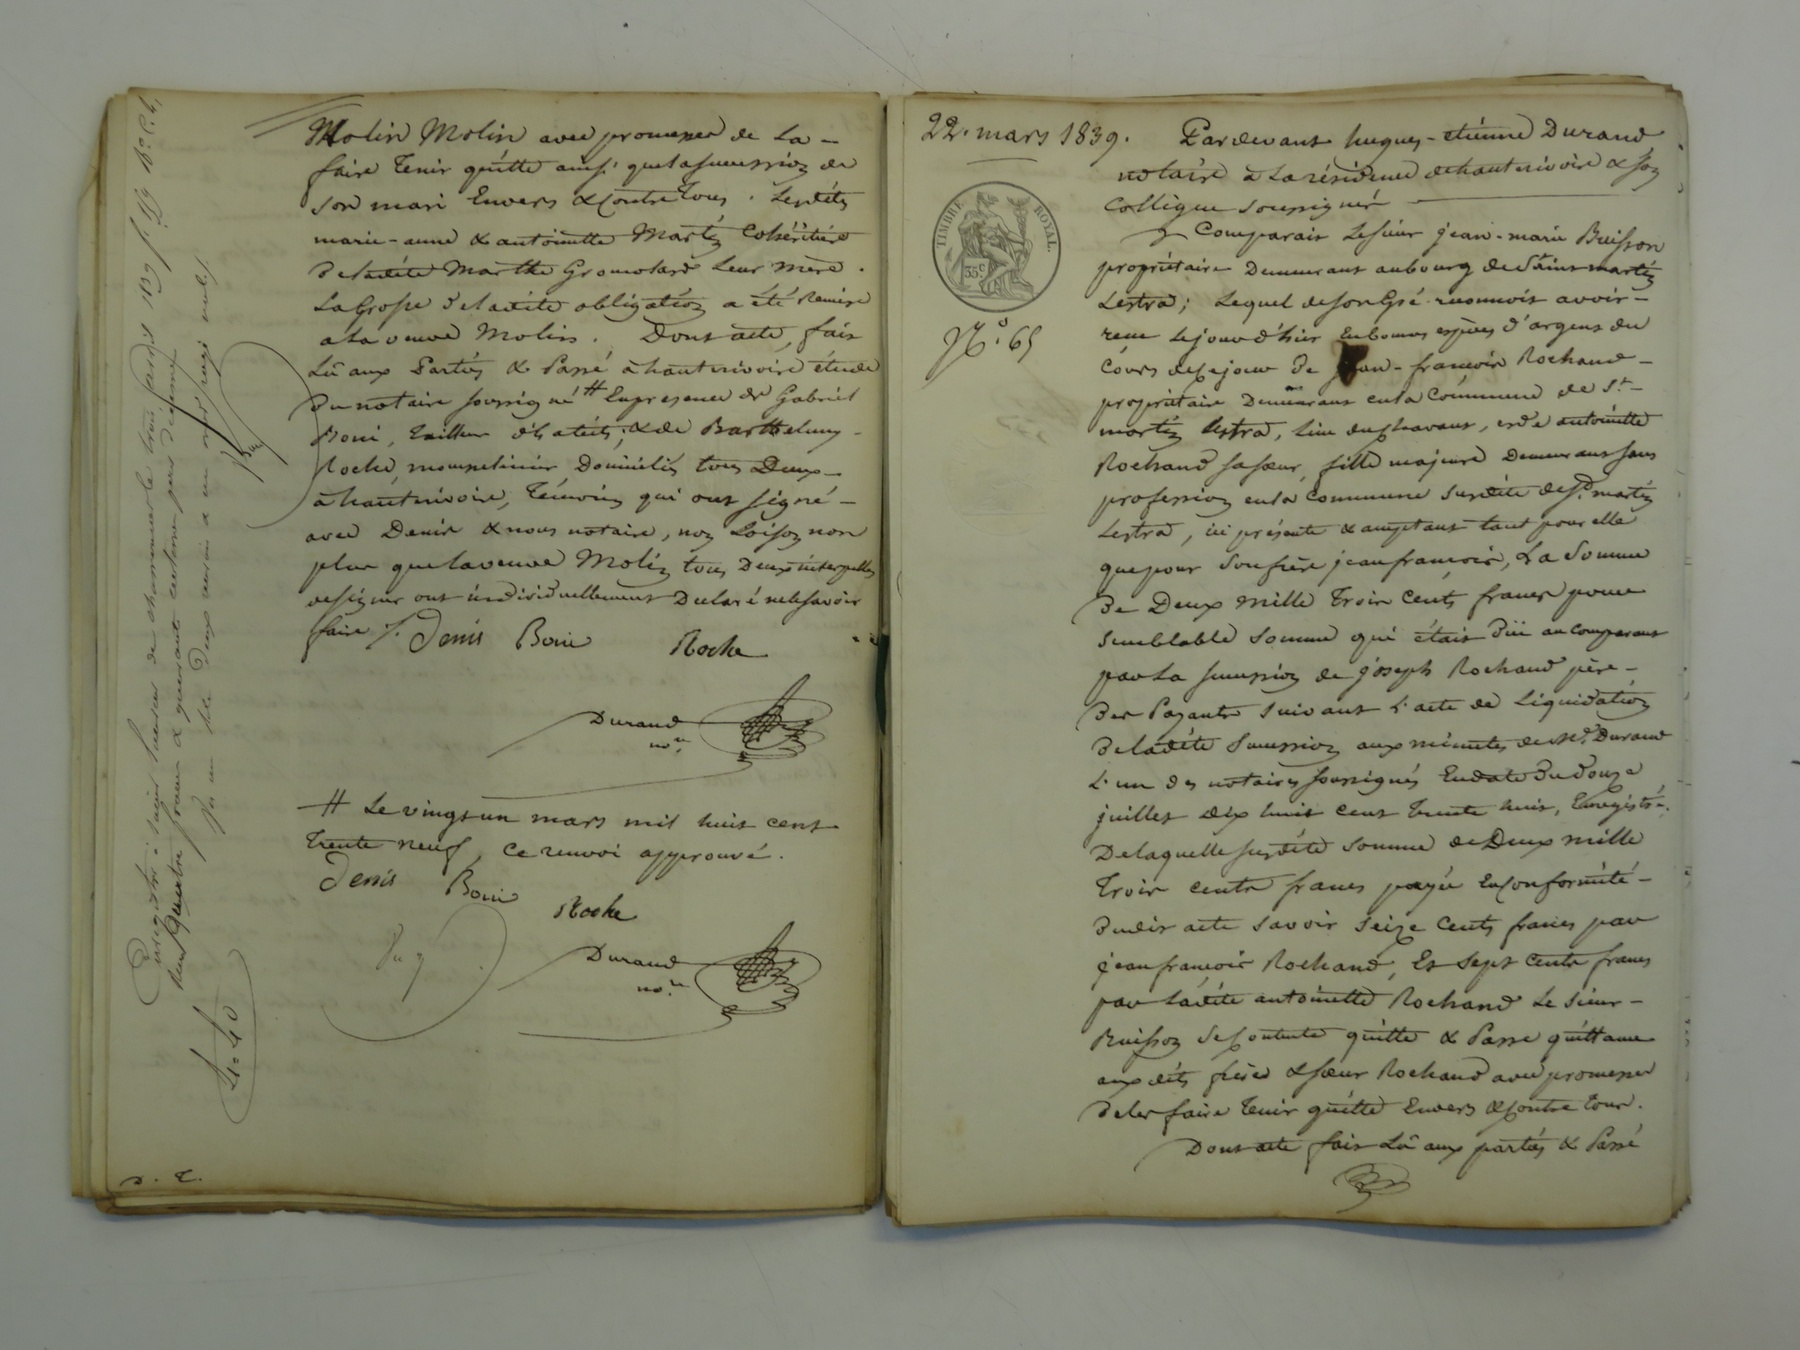 Molin Molin avec promesse de la
faire tenir quitte ainsi que la succession de
son mari Envers & Contre tous. Lesdites
marie-anne & antoinette Martin Cohéritière
de ladite Marthe Gromolard leur mère.
La Grosse de ladite obligation a été Remise
a la veuve Molin. Dont acte, fait
Lû aux Parties & Passé à hautrivoire étude
du notaire soussigné # En presence de Gabriel
Boui, tailleur d'habits, & de Barthelemy
Roche, domiciliés tous Deux
à hautrivoire, Témoins qui ont signé
avec Denis & nous notaire, non Loison non
plus que la veuve Molin tous Deux interpellés
de signer ont individuellement Declaré ne le savoir
faire /. Denis Boui Roche
Durand
nore.
# Le vingt un mars mil huit cent
trente neuf, ce renvoi approuvé.
Denis Boui
Roche
Durand
nore.
Enregistré à saint
4=40
D. E.
22. mars 1839.
TIMBRE ROYAL.
35c
No. 65
Pardevant hugues-etiénne Durand
notaire à la résidence de hautrivoire & son
Collégue soussignés
Comparait Le sieur jean-marie Buisson
propriétaire Demeurant au bourg de Saint martin
Lestra; Lequel de son Gré reconnoit avoir
recu Le jour d'hier En bonnes espèces d'argent du
Cours de ce jour De jean-francois Rochand
propriétaire Demeurant en la Commune de St.
martin Lestra, Lieu du, et d'antoinette
Rochand sa sœur, fille majeure Demeurant sans
profession en la Commune susdite de St. martin
Lestra, ici présente & acceptant tant pour elle
que pour son frère jean francois, La Somme
De Deux mille Trois Cents francs pour
semblable somme qui était dûë au comparant
par La succession de joseph Rochand père
Des Payants suivant l'acte de Liquidation
De ladite succession aux minutes de Me. Durand
L'un des notaires soussignés En date du douze
juillet dix huit cent trente huit, Enregistré.
De laquelle susdite somme de Deux mille
Trois cents francs payée En Conformité
dudit acte savoir seize Cents francs par
jean francois Rochand, Et sept Cents francs
par Ladite antoinette Rochand Le sieur
Buisson se Contente quitte & Passe quittance
aux dits frère & sœur Rochand avec promesse
de les faire tenir quitte Envers & Contre tous.
Dont acte fait Lû aux parties & Passé